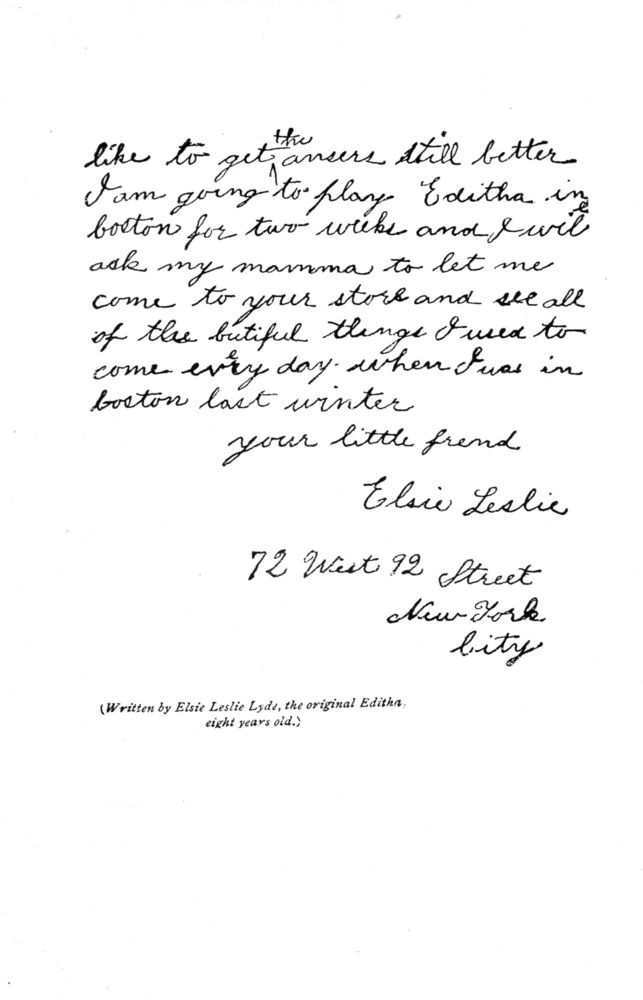 like to get the ansers still better
I am going to play Editha in
boston for two weeks and I will
ask my mamma to let me
come to your store and see all
of the butiful things I used to
come every day when I was in
boston last winter
your little frend
Elsie Leslie
72 West 92 Street
New York
City
(Written by Elsie Leslie Lyde, the original Editha,
eight years old.)